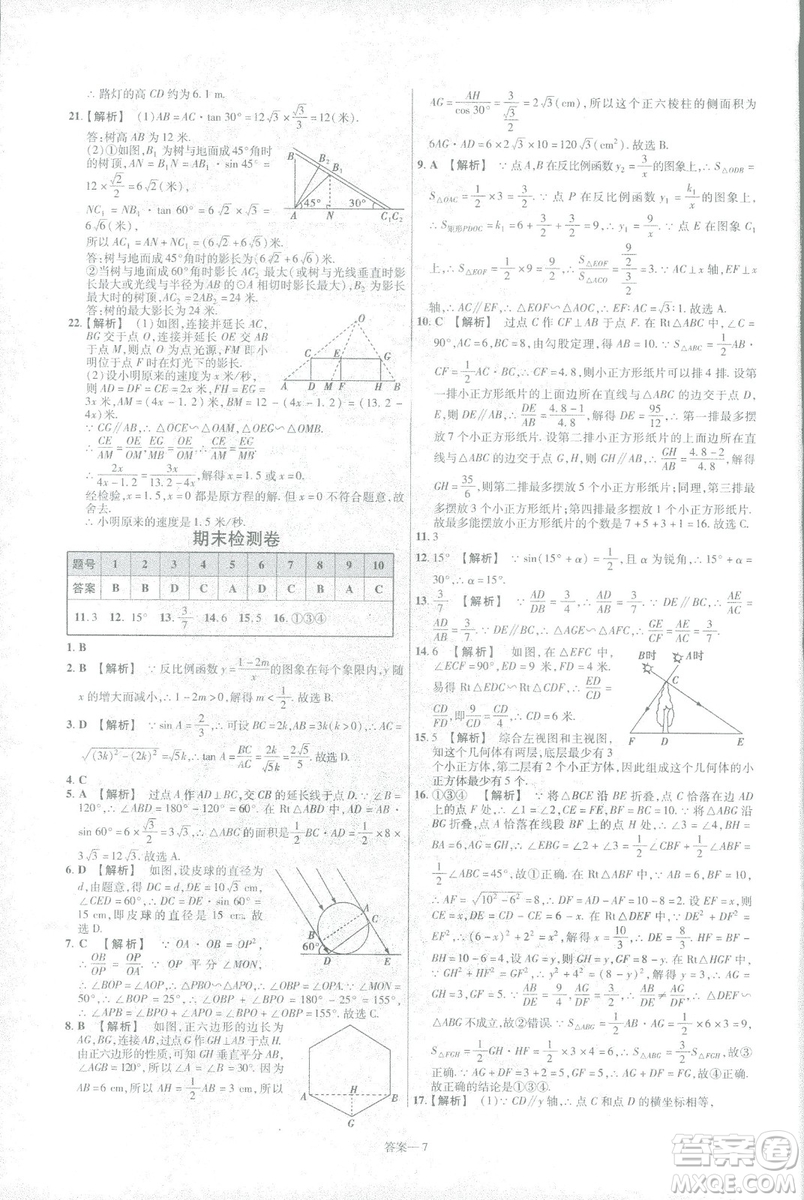 ∴ 路灯的高 CD 约为 6.1 m.
21.【解析】 (1)AB=AC·tan 30°=12×√3/3=12(米).
答:树高 AB 为 12 米.
(2)①如图,B₁ 为树与地面成 45°角时
的树顶,AN=NB₁=AB₁·sin 45°=
12×√2/2=6√2(米),
NC₁=NB₁·tan 60°=6√2×√3=
6√6(米),
所以 AC₁=AN+NC₁=(6√2+6√6)米.
答:树与地面成 45°角时的影长为(6√2+6√6)米.
②当树与地面成 60°角时影长 AC₂ 最大(或树与光线垂直时影长
最大或光线与半径为 AB 的⊙A 相切时影长最大), B₂ 为树影
长最大时的树顶,AC₂=2AB₂=24(米),
答:树的最大影长为 24 米.
22.【解析】 (1)如图,连接并延长 AC,
BG 交于点 O,则点 O 为点光源,FM
为小明在点 F 时在灯光下的影长.
(2)设小明原来的速度为 x 米/秒,
则 AD=DF=CE=2x 米,FH=EG=
3x 米,AM=(4x-1.2)米,BM=12-(4x-1.2)=(13.2-
4x)米.
∵CG∥AB,∴△OCE∽△OAM,△OEG∽△OMB.
∴CE/AM=OE/OM,EG/BM=OE/OM,∴CE/AM=EG/BM.
∴2x/(4x-1.2)=3x/(13.2-4x),解得 x=1.5 或 x=0.
经检验,x=1.5,x=0 都是原方程的解,但 x=0 不符合题意,故
舍去.
∴小明原来的速度是 1.5 米/秒.
期末检测卷
题号 1 2 3 4 5 6 7 8 9 10
答案 B B D C A D C B A C
11.3 12.15° 13.3/7 14.6 15.5 16.①③④
1. B
2. B 【解析】 ∵反比例函数 y=(1-2m)/x 的图象在每个象限内,y 随
x 的增大而减小,∴1-2m>0,解得 m<1/2.故选 B.
3. D 【解析】 ∵ sin A=2/3,∴可设 BC=2k,AB=3k,∴AC=
√((3k)²-(2k)²)=√5k,∴tan A=BC/AC=2/√5=2√5/5.故选 D.
4. C
5. A 【解析】 过点 A 作 AD⊥BC,交 CB 的延长线于点 D.∵∠B=
120°,∴∠ABD=180°-120°=60°.在 Rt△ABD 中,AD=AB·
sin 60°=6×√3/2=3√3,∴△ABC 的面积是1/2BC·AD=1/2×8×
3√3=12√3.故选 A.
6. D 【解析】 如图,设皮球的直径为
d,由题意,得 DC=d=DE·sin 60°=
15 cm,即皮球的直径是 15 cm.故
选 D.
7. C 【解析】 ∵OA·OB=OP²,
∴OB/OP=OP/OA.∵OP 平分∠MON,
∴∠BOP=∠AOP,∴△PBO∽△APO,∴∠OBP=∠OPA.∵∠MON=
50°,∴∠BOP=25°,∴∠OBP+∠BPO=180°-∠BOP=155°,
∴∠APB=∠BPO+∠APO=∠BPO+∠OBP=155°.故选 C.
8. B 【解析】 如图,正六边形的边长为
AG,BG,连接AB,过点 G 作 GH⊥AB,
由正六边形的性质,可知 GH 垂直平分 AB.因
为 AB=6 cm,所以 AH=1/2AB=3 cm,所以
AG=AH/cos 30°=3/(√3/2)=2√3(cm),所以这个正六棱柱的侧面积为
6AG·AD=6×2√3×10=120√3(cm²).故选 B.
9. A 【解析】 ∵点 A,B 在反比例函数 y₂=3/x的图象上,∴S△ODB=
S△OAC=1/2×3=3/2.∵点 P 在反比例函数 y₁=k₁/x的图象上,∴
S矩形PDOC=k₁=6+3/2+3/2=9,∴y₁=9/x.∵点 E 在反比例函数图象 C₁
上,∴S△EOF=1/2×9=9/2,∴S△EOF/S△ACO=3.∵AC⊥x 轴,EF⊥x
轴,∴AC∥EF,∴△EOF∽△AOC,∴EF∶AC=√3∶1.故选 A.
10. C 【解析】 过点 C 作 CF⊥AB 于点 F.在 Rt△ABC 中,∠C=
90°,AC=8,BC=6,由勾股定理,得 AB=10.∵S△ABC=1/2AB·
CF=1/2AC·BC,∴CF=4.8,∴小正方形纸片可以排 4 排.设第
一排小正方形纸片的上面边所在直线与△ABC的边交于点 D,
E,则 DE∥AB,∴DE/AB=(4.8-1)/4.8,解得 DE=95/12,∴第一排最多摆
放 7 个小正方形纸片.设第二排小正方形纸片的上面边所在直
线与△ABC 的边交于点 G,H,同理,得GH/AB=(4.8-2)/4.8,解得
GH=35/6,则第二排最多摆放 5 个小正方形纸片;同理,第三排最
多摆放 3 个小正方形纸片,第四排最多摆放 1 个小正方形纸片.
故最多能摆放小正方形纸片的个数为 7+5+3+1=16.故选 C.
11. 3
12. 15° 【解析】 ∵sin(α+15°)=1/2,且 α 为锐角,∴α+15°=30°,
∴α=15°.
13. 3/7 【解析】 ∵AD/DB=3/4,∴AD/AB=3/7.∵DE∥BC,∴AE/AC=
AD/AB=3/7.又∵EF∥CG,∴△AGE∽△AFC,∴GE/FC=AE/AC=3/7.
14. 6 【解析】 如图,在 Rt△ECF 中,
∠ECF=90°,CD⊥EF,∴∠E=∠FCD,
易得 Rt△EDC∽Rt△CDF,∴ED/CD=
CD/FD,即4/CD=CD/9,∴CD=6.
B时 A时
15. 5 【解析】 综合左视图和主视图,
知这个几何体有两层,底层最少有 3
个小正方体,第二层有 2 个小正方体,因此组成这个几何体的小
正方体最少有 5 个.
16. ①③④ 【解析】 ∵将△BCE 沿 BE 折叠,点 C 恰落在边 AD
上的点 F 处,∴∠1=∠2,CE=FE,BF=BC=10.∵将△ABG 沿
BG 折叠,点 A 恰落在线段 BF 上的点 H 处,∴∠3=∠4,BH=
BA=6,AG=GH,∴∠2+∠3=1/2∠CBF+1/2∠ABF=
1/2∠ABC=45°,故①正确.在 Rt△ABF 中,AB=6,BF=10,
∴AF=√(10²-6²)=8,∴DF=AD-AF=10-8=2.设 EF=
CE=x,则 DE=CD-CE=6-x.在 Rt△DEF 中,∵DE²+DF²=
EF²,∴(6-x)²+2²=x²,解得 x=10/3,∴DE=8/3.∵HF=BF-BH=
4,∴设 AG=GH=y,则 GF=8-y,在 Rt△HGF 中,
∵GH²+HF²=GF²,∴y²+4²=(8-y)²,解得 y=3,∴AG=
GH=3,GF=5.∵∠A=∠D,AB/DE=9/4,AG/DF=3/2,∴AB/DE≠AG/DF,∴△DEF∽
△ABG 不成立,故②错误.∵S△ABG=1/2×6×3=9,S△FGH=
1/2GH·HF=1/2×3×4=6,∴S△ABG=3/2S△FGH,故③正
确.∵AG+DF=3+2=5,而 GF=5,∴AG+DF=GF,故④正确.
故正确的结论是①③④.
17.【解析】 (1)∵CD∥y 轴,∴点 C,D 的横坐标相等,
答案—7
答案圈
MXQE.COM